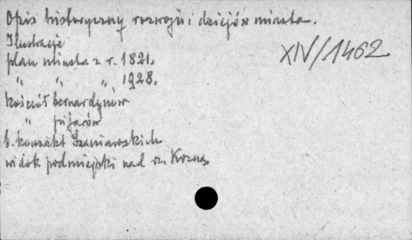 Opis historyczny rozwoju i dziejów miasta.
Ilustracje
XIV/1462
plan miasta z r. 1821.
" " " 1928.
kościół bernardynów
" pijarów
b. konwikt Szaniawskich
widok podmiejski nad rz. Krzną